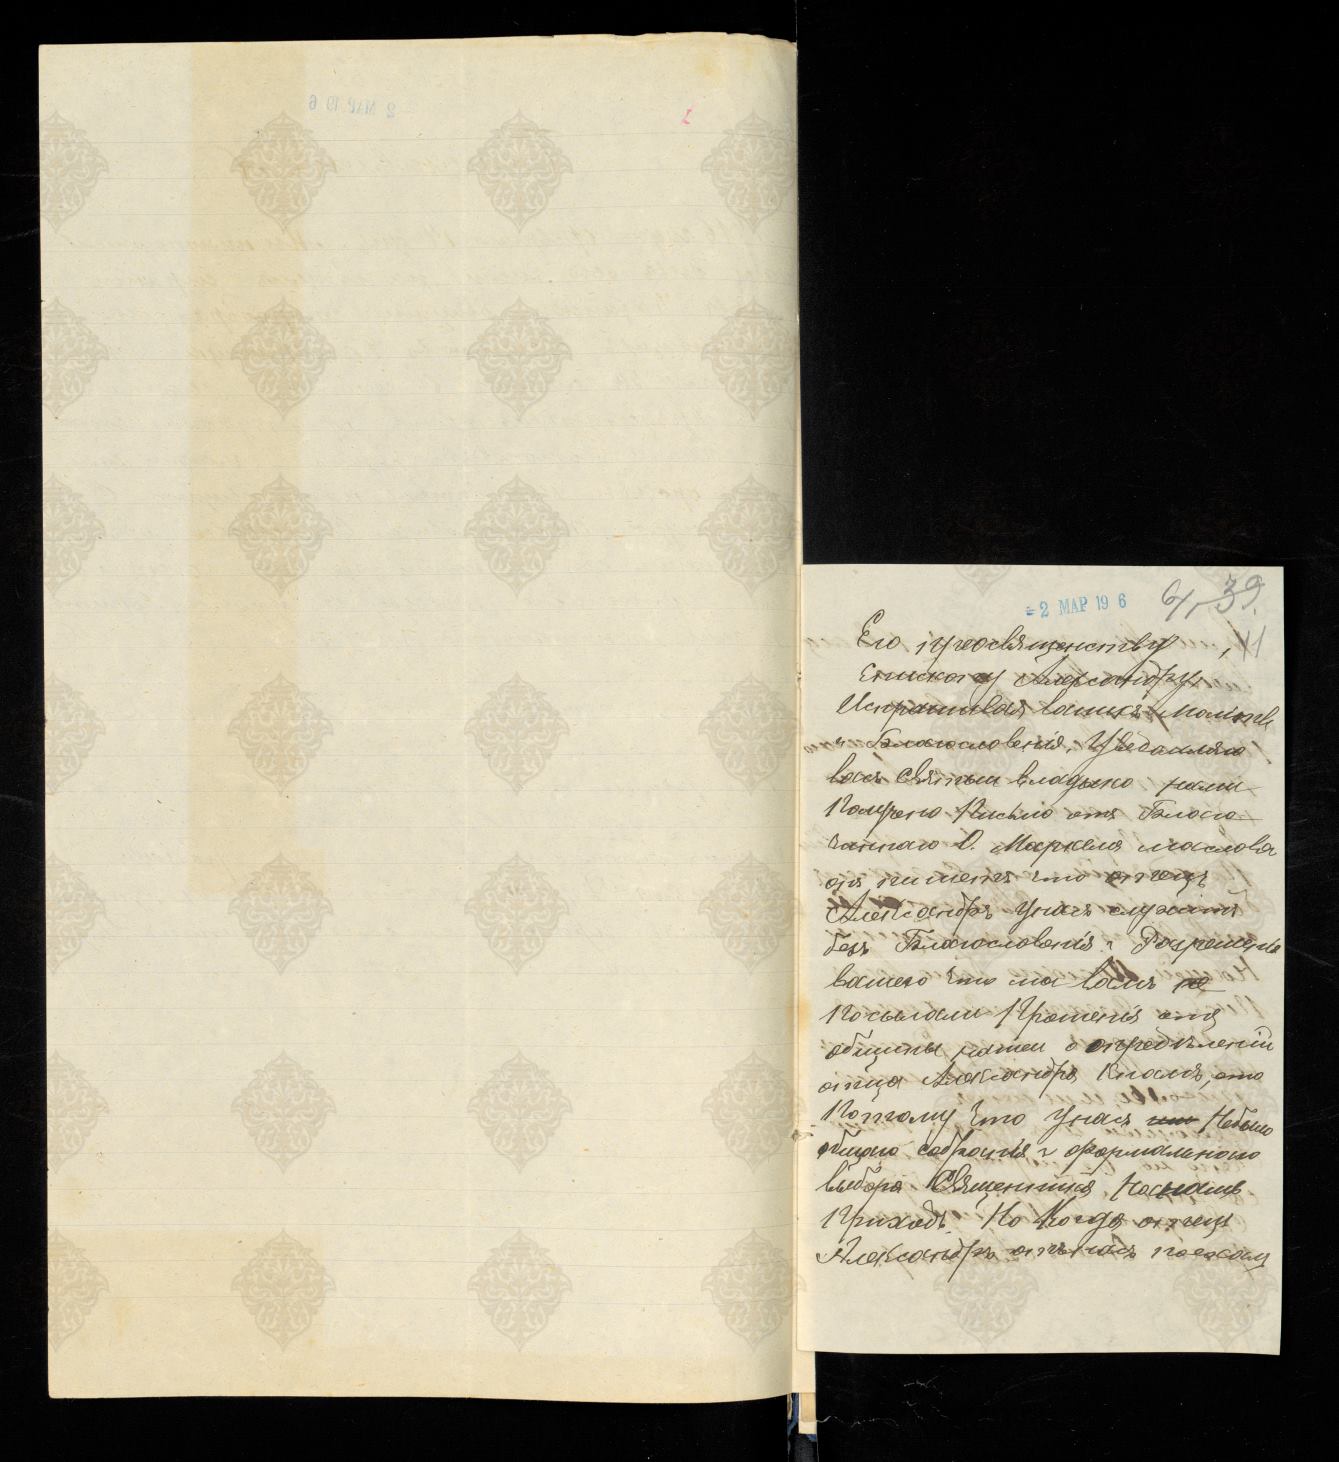 2 МАР 19 6
39.
41
Его преосвященству,
Епископу Александру
Испрашивая вашихъ молитвъ
и Благословенія, Уведомляю
васъ Святый владыко нами
Получено Письмо отъ Благо
чиннаго О. Маркела маслова
онъ пишетъ что отецъ
Александръ Унасъ служитъ
безъ Благословенія и Разрешенія
вашего что мы вамъ не
Посылали Прошенія отъ
общины нашей о определеніи
отца Александра Кнамъ, это
Потому что Унасъ Небыло
общаго собранія и формальнаго
выбора Священника Нанашъ
Приходъ. Но Когда отецъ
Александръ отънасъ поехалъ